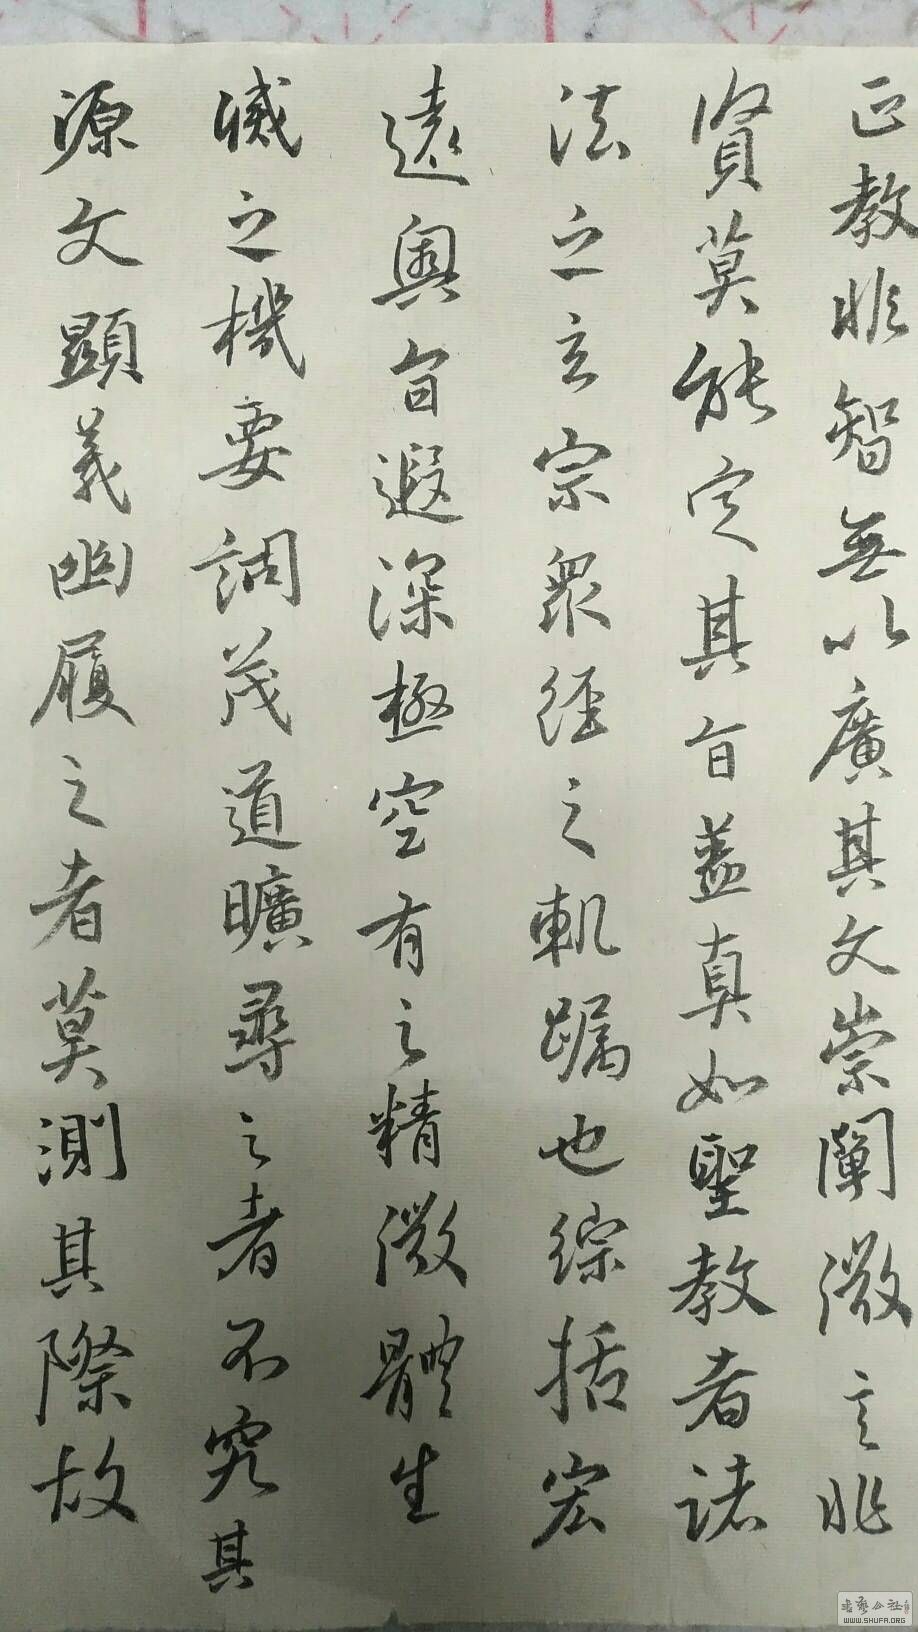 正教非智無以廣其文崇闡微言非
賢莫能定其旨蓋真如聖教者諸
法之玄宗眾經之軌躅也綜括宏
遠奧旨遐深極空有之精微體生
滅之機要詞茂道曠尋之者不究其
源文顯義幽履之者莫測其際故
書藝公社
WWW.SHUFA.ORG